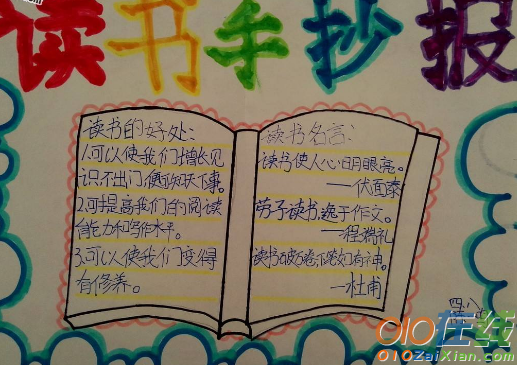 读书手抄报
读书的好处：
1.可以使我们增长见
识不出门便可知天下事。
2.可提高我们的阅读
能力和写作水平。
3.可以使我们变得
有修养。
读书名言：
读书使人心明眼亮。
——伏尔泰
劳于读书，逸于作文。
——程端礼
读书破万卷下笔如有神。
——杜甫
四.八
010在线
010ZaiXian.com